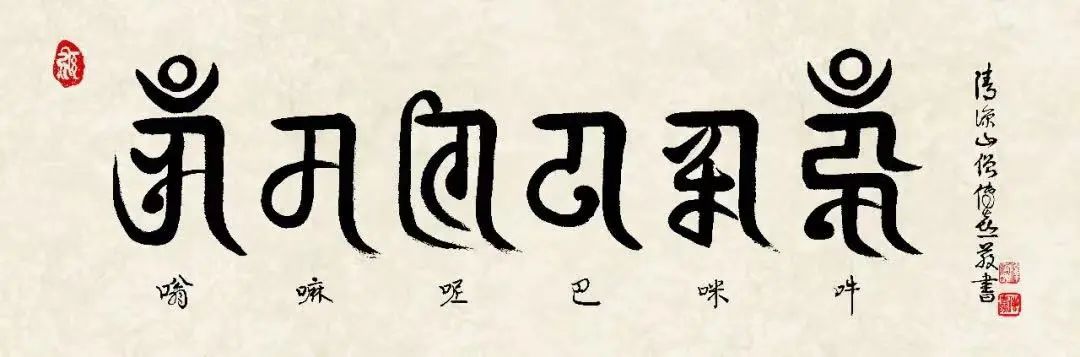 𑖌𑖼 𑖦 𑖜𑖰 𑖢 𑖟𑖿𑖦𑖸 𑖮𑖳𑖼
嗡 嘛 呢 巴 咪 吽
清涼山僧傳 敬書